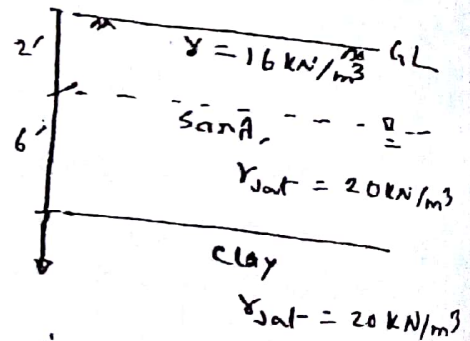 2'
γ = 16 kN/m³ GL
Sand,
6'
γsat = 20 kN/m³
Clay
γsat = 20 kN/m³